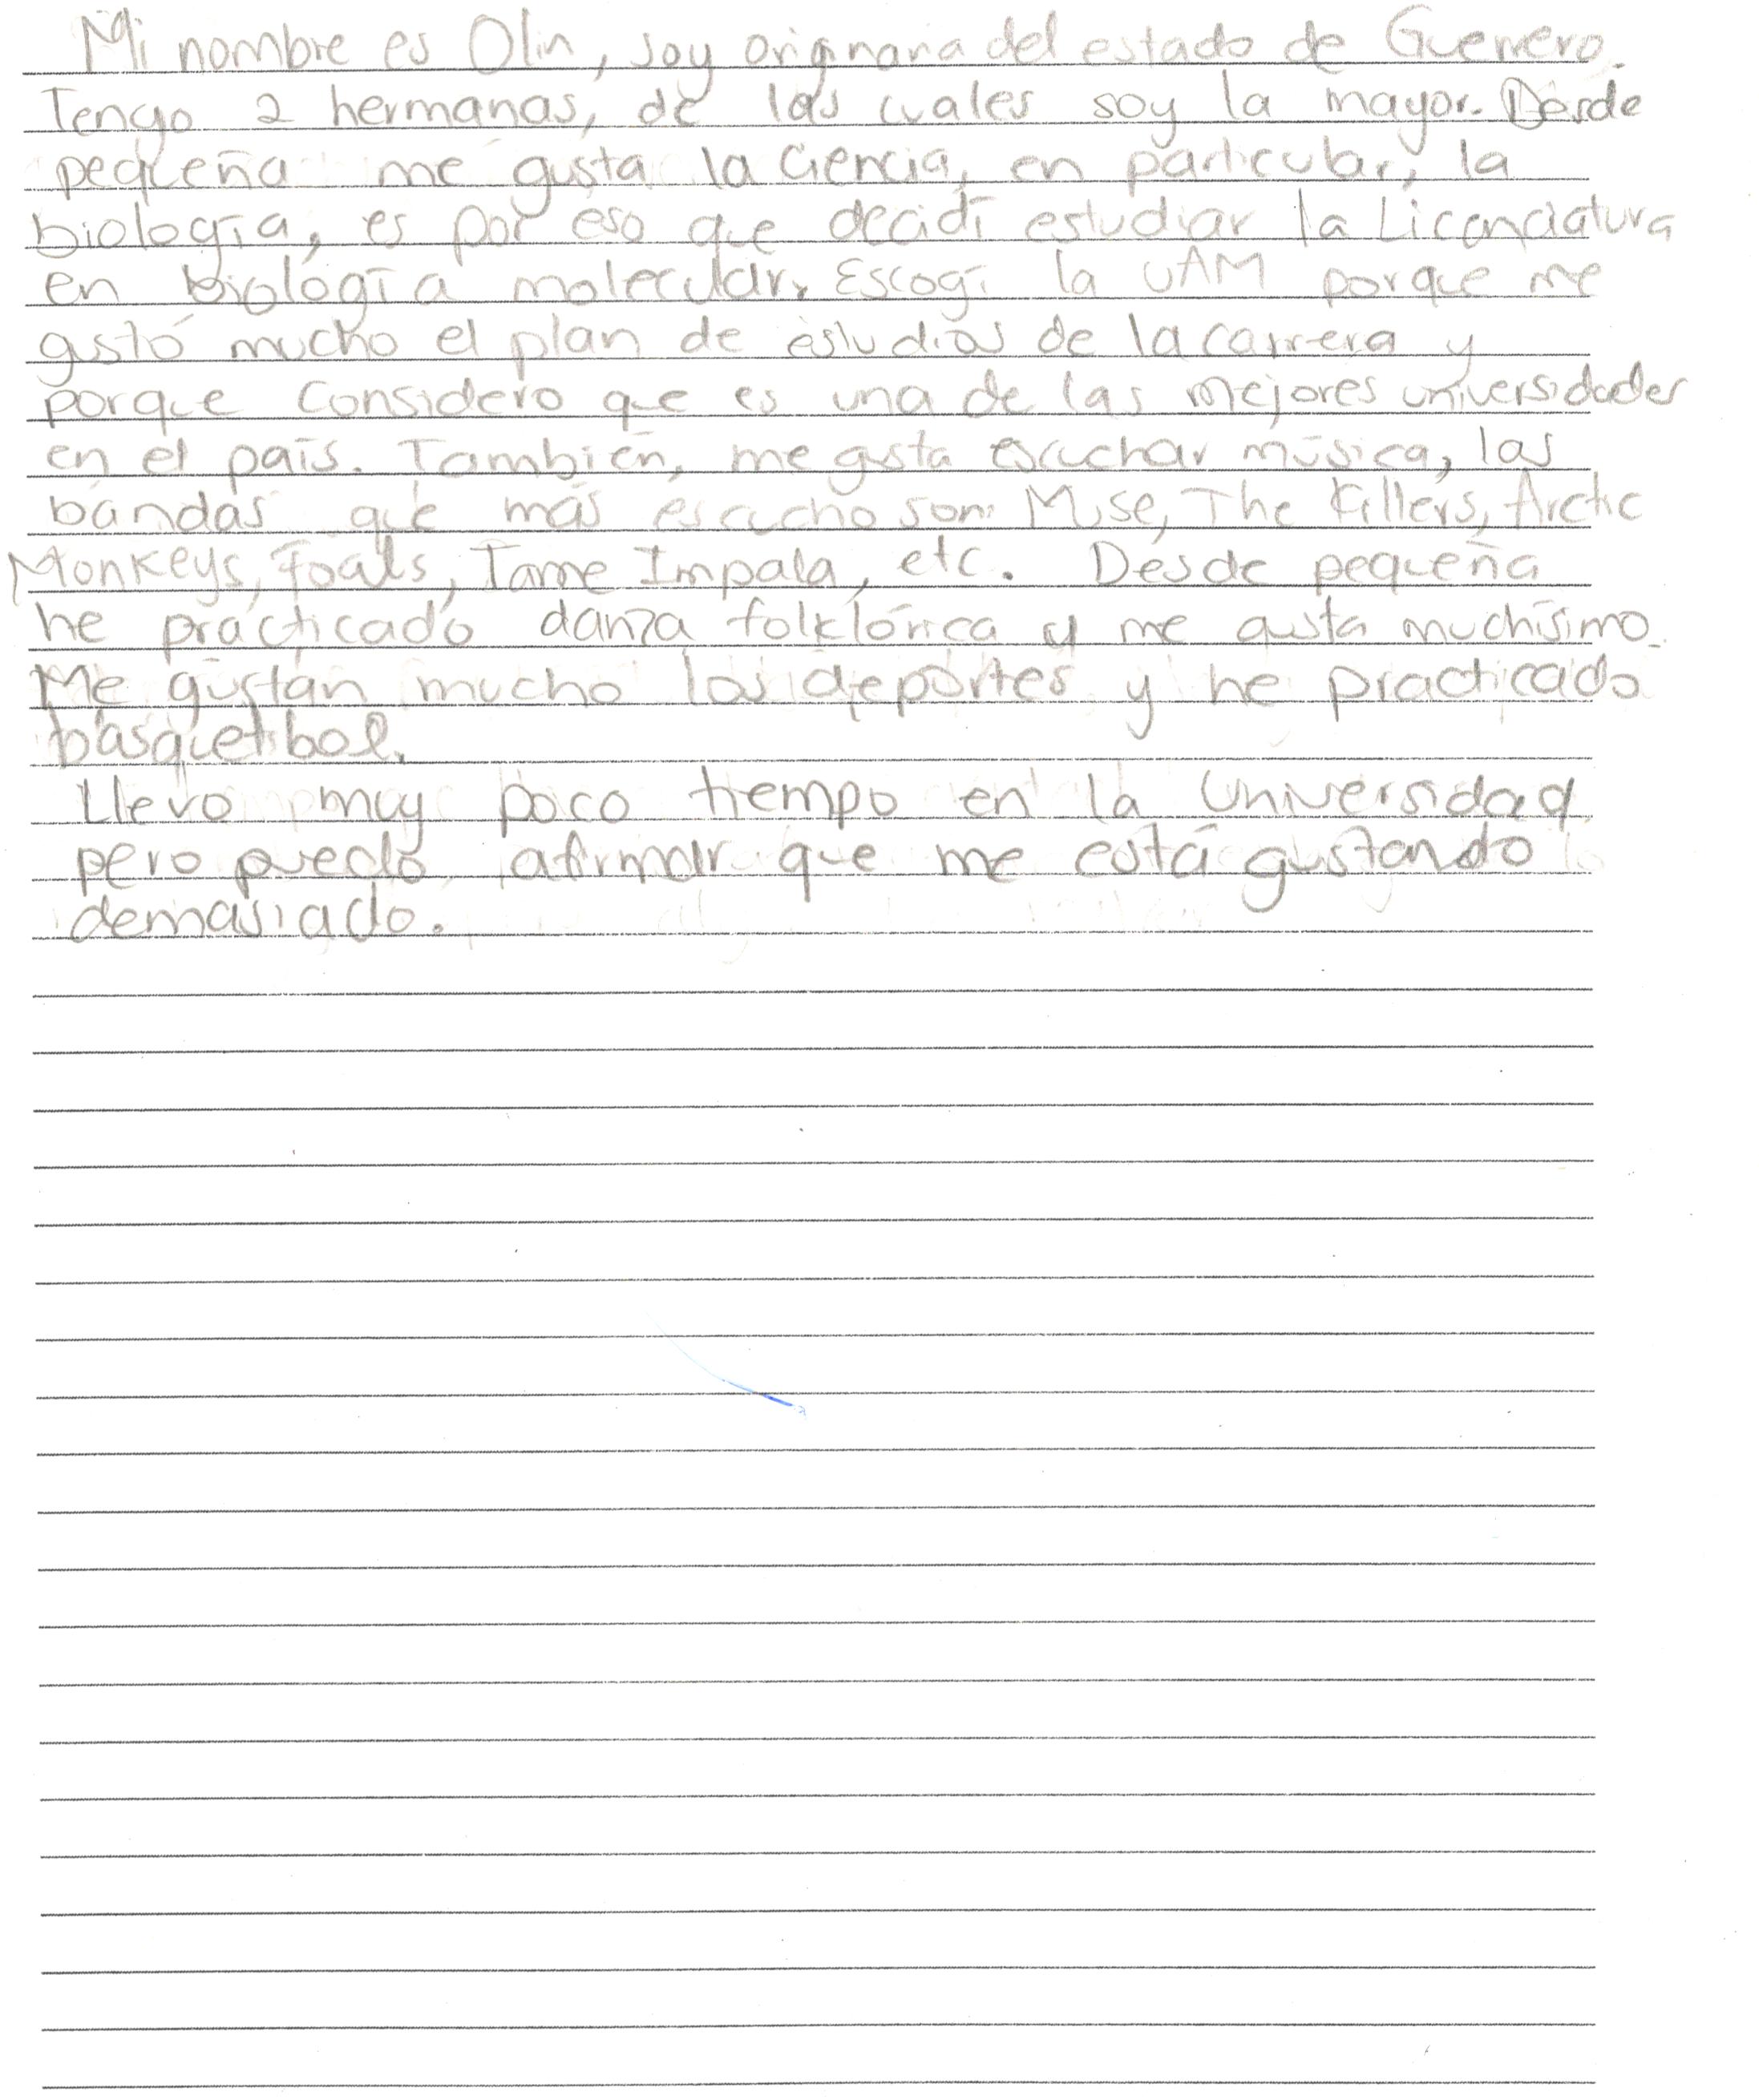 Mi nombre es Olin, soy originaria del estado de Guerrero.
Tengo 2 hermanas, de las cuales soy la mayor. Desde
pequeña me gusta la ciencia, en particular, la
biología, es por eso que decidí estudiar la Licenciatura
en biología molecular. Escogí la UAM porque me
gustó mucho el plan de estudios de la carrera y
porque considero que es una de las mejores universidades
en el país. También, me gusta escuchar música, las
bandas que más escucho son: Muse, The Killers, Arctic
Monkeys, Foals, Tame Impala, etc. Desde pequeña
he practicado danza folklórica y me gusta muchísimo.
Me gustan mucho los deportes y he practicado
basquetbol.
Llevo muy poco tiempo en la Universidad
pero puedo afirmar que me está gustando
demasiado.